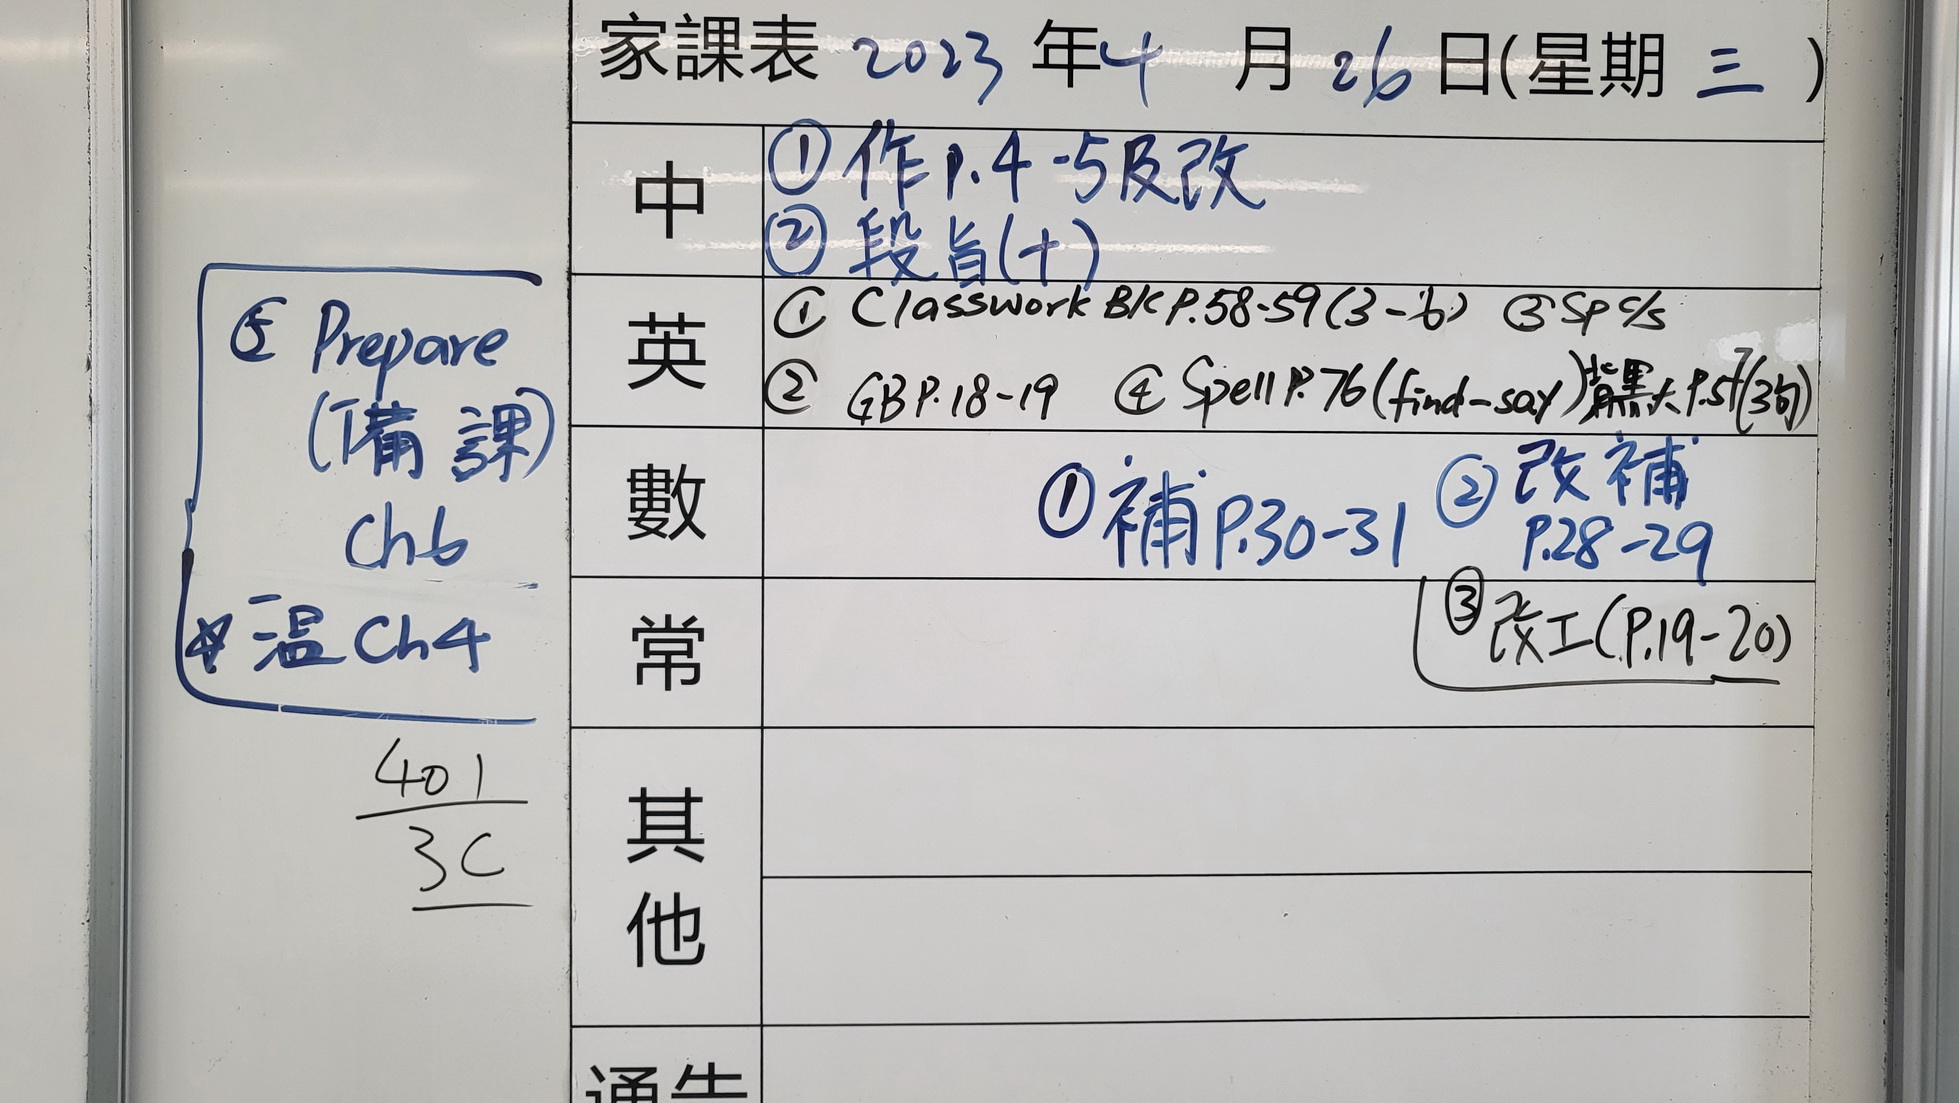 家課表 2023 年 4 月 26 日(星期 三 )
中
① 作 P.4-5及改
② 段旨(十)
英
① Classwork BK P.58-59(3-6) ③ Sp c/s
② GB P.18-19 ④ Spell P.76(find-say)背黑大P.57(3句)
⑤ Prepare
(備課)
Ch6
☆ 温 Ch4
數
① 補 P.30-31 ② 改補
P.28-29
常
③ 改工(P.19-20)
401
3C
其
他
通告